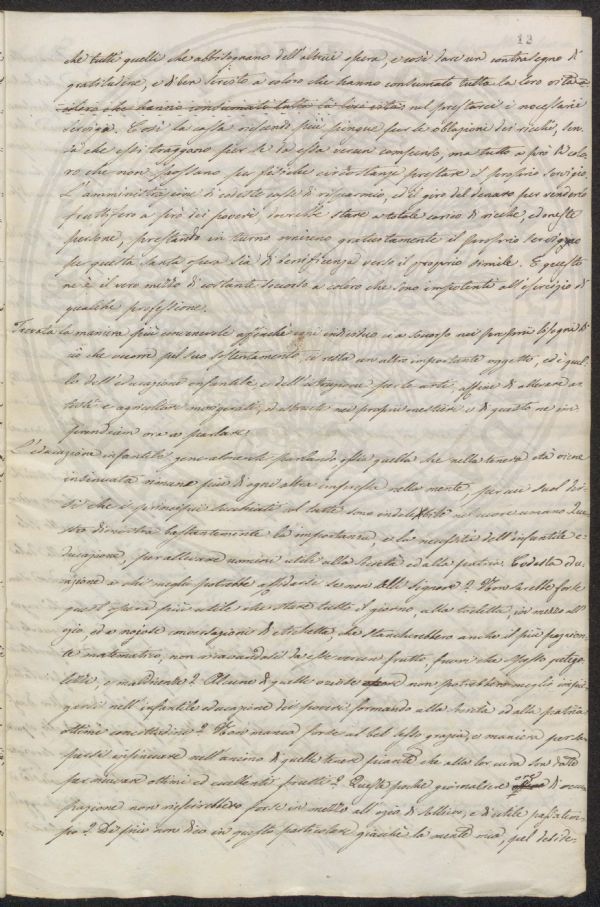 12
che tutti quelli che abbisognano dell'altrui opera, e così dare un contrasegno di
gratitudine, e di ben servito a coloro che hanno consumato tutta la loro vita
coloro che hanno consumato tutta la loro vita nel prestarci i necessarii
servigi. Così la cassa essendo più pingue per le oblazioni dei ricchi, sen-
za che essi traggano per se da essa verun compenso, ma tutto a prò di colo-
ro che non possono per fisiche circostanze prestare il proprio servigio.
L'amministrazione di codeste casse di risparmio, ed il giro del denaro per renderlo
fruttifero a prò dei poveri, dovrebbe stare a totale carico di ricche, ed oneste
persone, prestando in turno ognuno gratuitamente il proprio servigio
per questa santa opera sia di beneficenza verso il proprio simile. E questo
ne è il vero mezzo di costante soccorso a coloro che sono impotenti all'esercizio di
qualche professione.
Trovata la maniera più conveniente affinchè ogni individuo sia soccorso nei proprii bisogni di
ciò che occorre pel suo sostentamento, ci resta un altro importante oggetto, ed è quel-
lo dell'educazione infantile e dell'istruzione per le arti, affine di allevare ar-
tisti e agricoltori morigerati, ed istruiti nei proprii mestieri e di questo ne in-
prendiam ora a parlare.
L'educazione infantile generalmente parlando essia quella che nella tenera età viene
insinuata rimane più di ogni altra impressa nella mente, per cui suol dir-
si che i principii succhiati col latte sono indelebili nel cuore umano. Que-
sto dimostra bastantemente la importanza e la necessità dell'infantile e-
ducazione, per allevare uomini utili alla società ed alla patria. Codesta edu-
cazione a chi meglio potrebbe affidarsi se non alle signore? Non sarebbe forse
quest'opera più utile che stare tutto il giorno, alla toeletta, in mezzo all'o-
zio, ed a nojose conversazioni di etichetta, che stancherebbero anche il più pazien-
te matematico, non ricavandosi da esse verun frutto, fuori che spesso pettego-
lezzi, e maldicenze? Alcune di quelle oziose non potrebbero meglio impie-
garsi nell'infantile educazione dei poveri formando alla società ed alla patria
ottimi concittadini? Non manca forse al bel sesso grazia, e maniera per sa-
persi insinuare nell'animo di quelle tenere piante che alla lor cura son date
per ricavare ottimi ed eccellenti frutti? Queste poche giornaliere ore di occu-
pazione non riuscirebbero forse in mezzo all'ozio di sollievo, e di utile passatem-
po? Di più non dico in questo particolare giacchè la mente mia, quel deside-